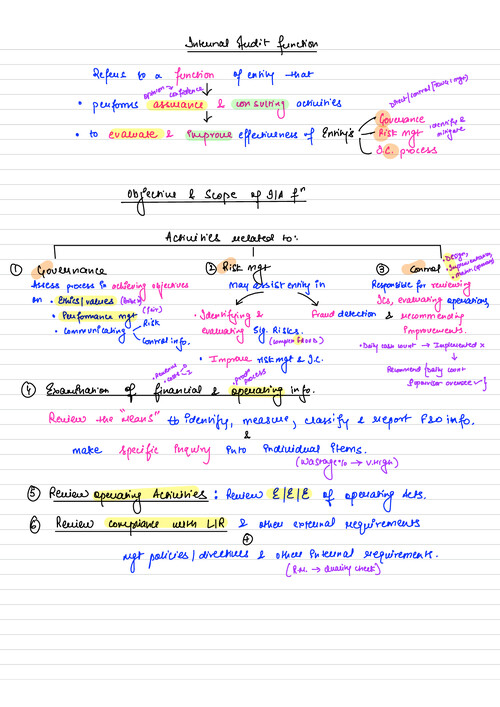 Internal Audit function
Refers to a function of entity that
opinion → confidence
• performs assurance & consulting activities
Direct/control
• to evaluate & improve effectiveness of Entity's
Governance
Risk mgt
identify & mitigate
I.C. process
Objective & Scope of I/A fⁿ
Activities related to:
① Governance
Assess process in achieving objectives
on • Ethics/values
• Performance mgt
• communicating
Risk
Control info.
② Risk mgt
may assist entity in
• Identifying & evaluating Sig. Risks.
(complex FRAUDS)
Fraud detection
• Improve risk mgt & I.C.
③ Control
• Design,
• Implementation,
Responsible for reviewing
ICs, evaluating operations,
& recommending
Improvements.
• Daily cash count → Implemented ×
Recommend / Daily count
Supervisor oversee ✓
④ Examination of financial & operating info.
Review the "means" to identify, measure, classify & report F&O info.
&
make specific inquiry into individual items.
(Wastage % → V.High)
⑤ Review operating Activities : Review E/E/E of operating Acts.
⑥ Review compliance with L/R & other external requirements
+
mgt policies/directives & other internal requirements.
(R.M. → quality check)